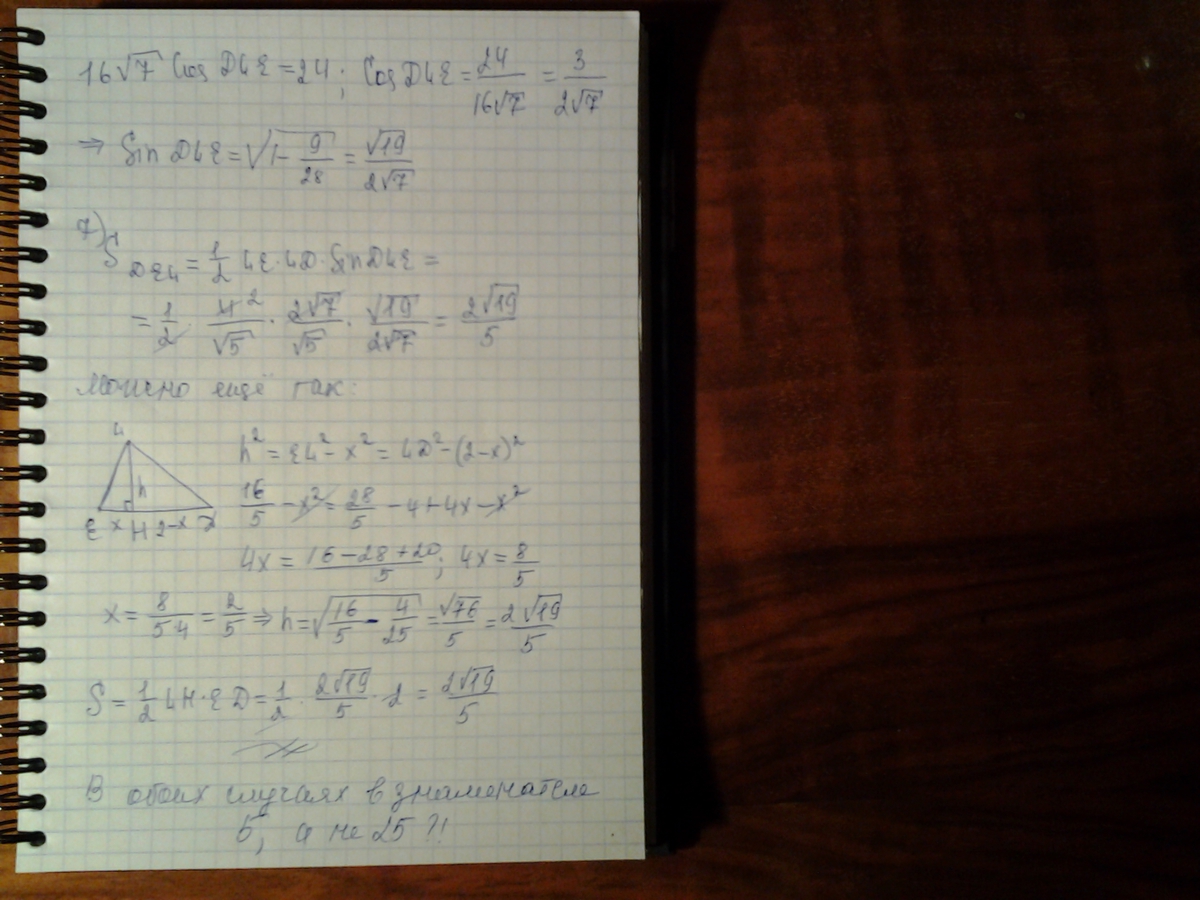 16√7 Cos D4E = 24 ; Cos D4E = 24/(16√7) = 3/(2√7)
⇒ Sin D4E = √(1 - 9/28) = √19/(2√7)
7) S DE4 = 1/2 4E · 4D · Sin D4E =
= 1/2 · 4 2/√5 · 2√7/√5 · √19/(2√7) = 2√19/5
Можно ещё так:
4
h
E x H 2-x D
h² = E4² - x² = 4D² - (2-x)²
16/5 - x² = 28/5 - 4 + 4x - x²
4x = (16 - 28 + 20)/5 ; 4x = 8/5
x = 8/(5·4) = 2/5 ⇒ h = √(16/5 - 4/25) = √76/5 = 2√19/5
S = 1/2 4H · ED = 1/2 · 2√19/5 · 2 = 2√19/5
В обоих случаях в знаменателе
5, а не 25 ?!